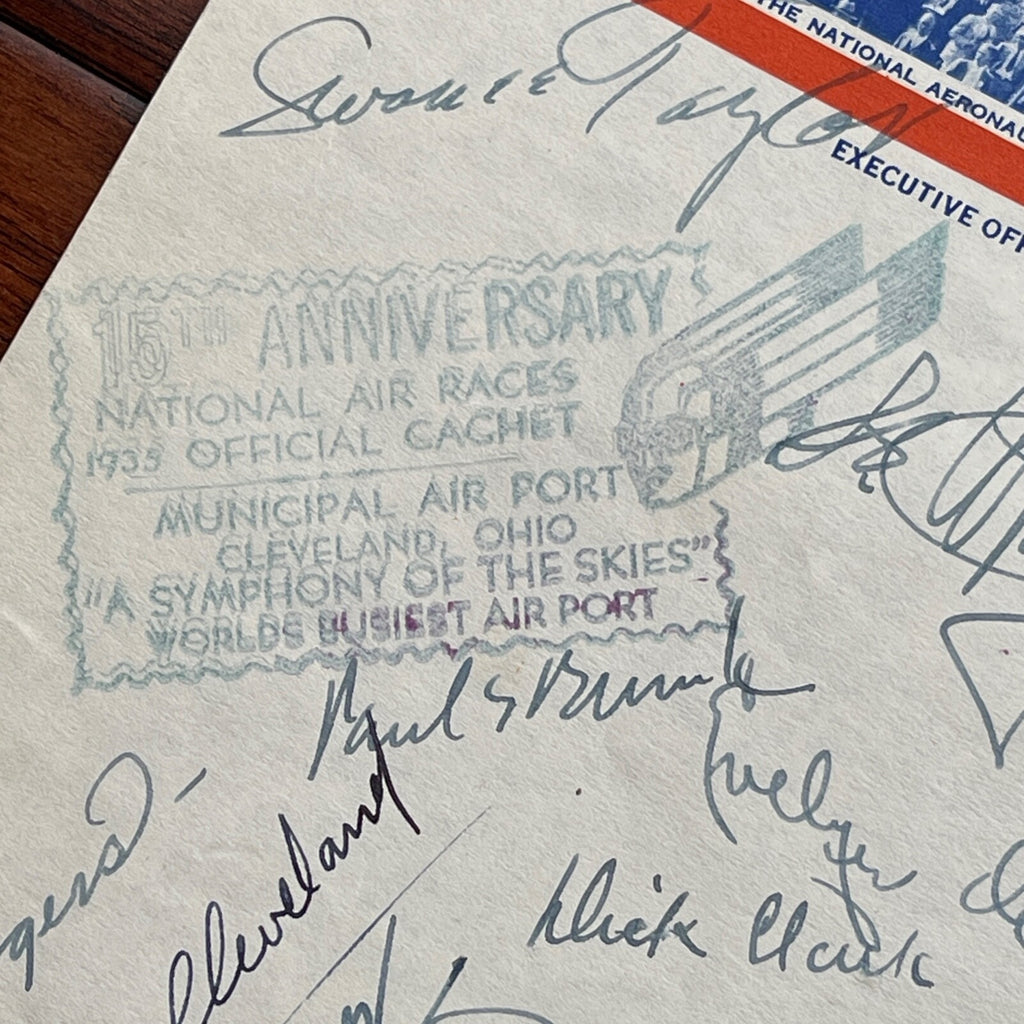 THE NATIONAL AERONAU
EXECUTIVE OF
Taylor
15TH ANNIVERSARY
NATIONAL AIR RACES
1935 OFFICIAL CACHET
MUNICIPAL AIR PORT
CLEVELAND, OHIO
"A SYMPHONY OF THE SKIES"
WORLDS BUSIEST AIR PORT
Paul
Evelyn
gers
Cleveland
Dick Clark